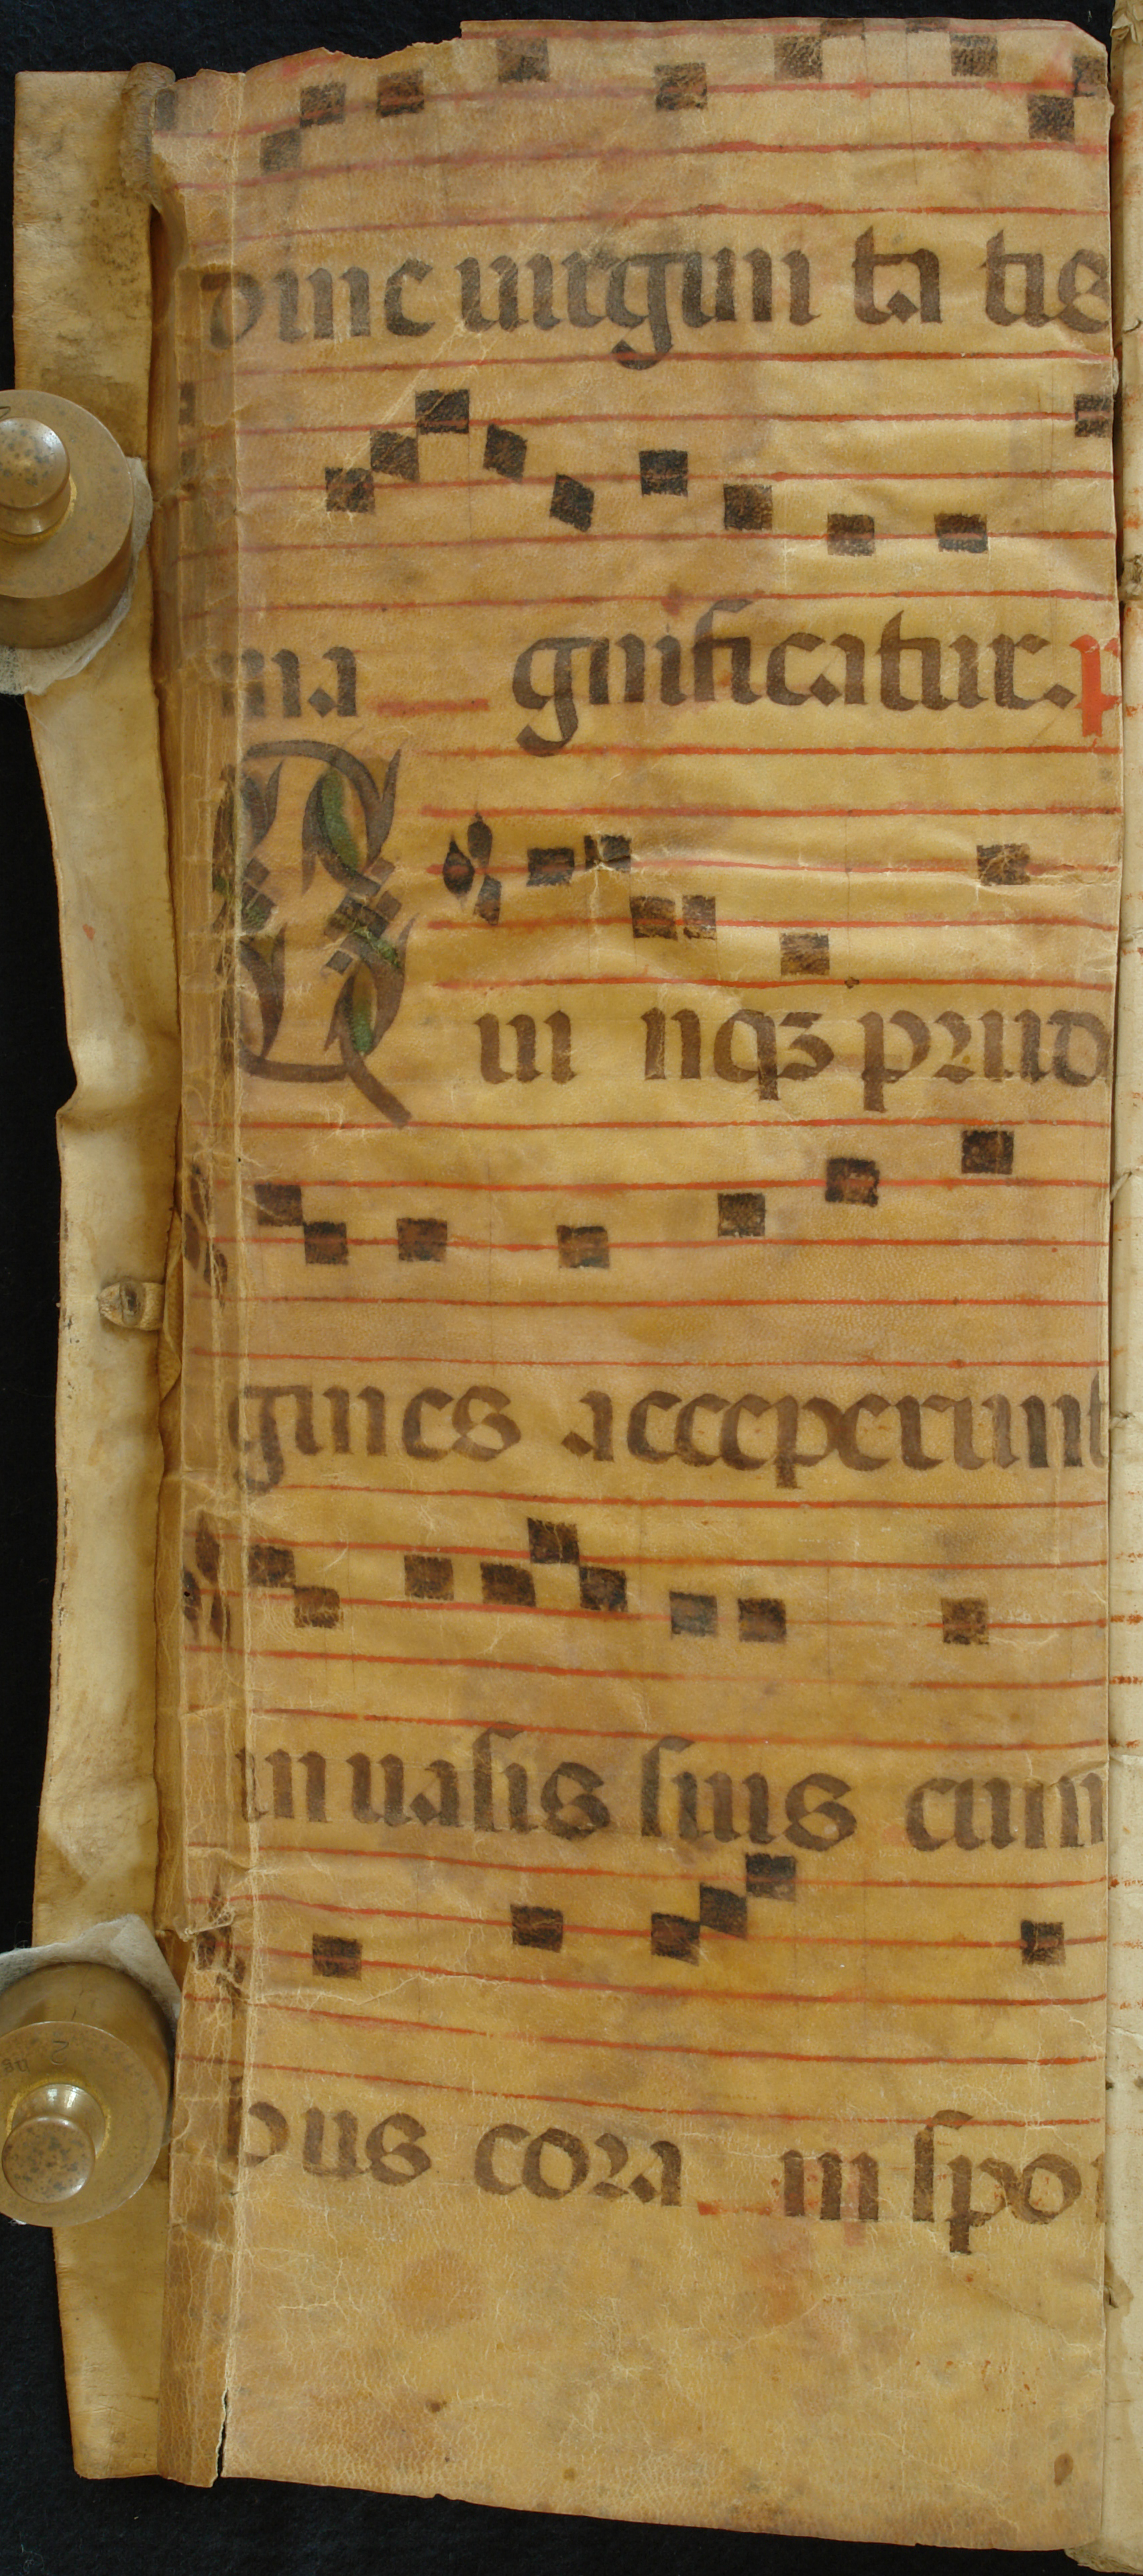 dine uirgini ta tis
ma gnificatur. p
Qui nqꝫ prud
gines acceperunt
in uasis suis cum
bus cora m spo